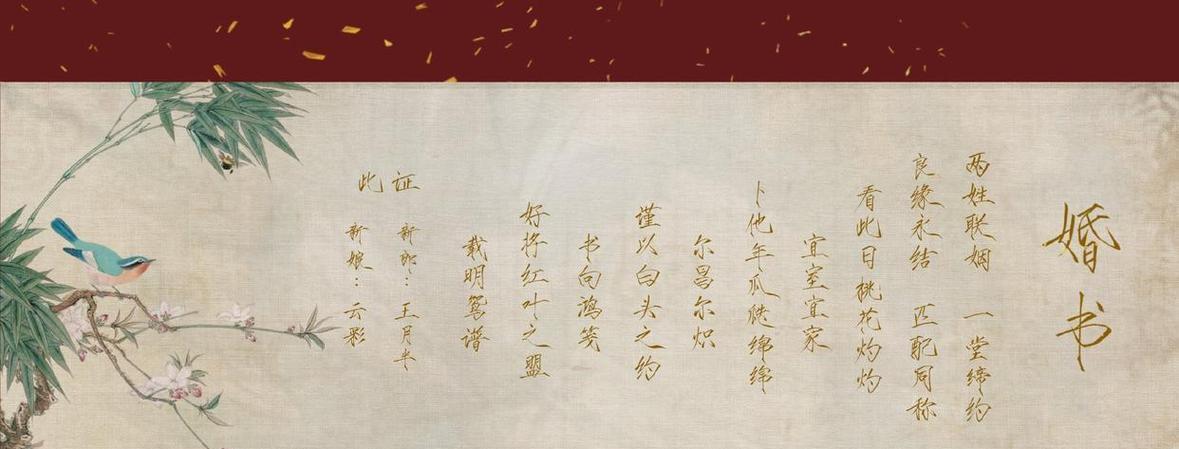 婚书
两姓联姻 一堂缔约
良缘永结 匹配同称
看此日桃花灼灼
宜室宜家
卜他年瓜瓞绵绵
尔昌尔炽
谨以白头之约
书向鸿笺
好将红叶之盟
载明鸳谱
此证
新郎:王月半
新娘:云彩